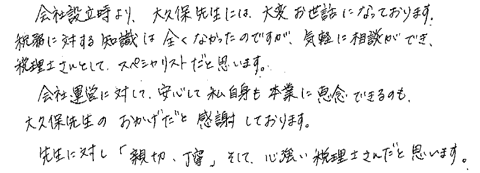 会社設立時より、大久保先生には、大変お世話になっております。
税務に対する知識は全くなかったのですが、気軽に相談ができ、
税理士さんとして、スペシャリストだと思います。
会社運営に対して、安心して私自身も本業に専念できるのも、
大久保先生のおかげだと感謝しております。
先生に対し「親切、丁寧」そして、心強い税理士さんだと思います。